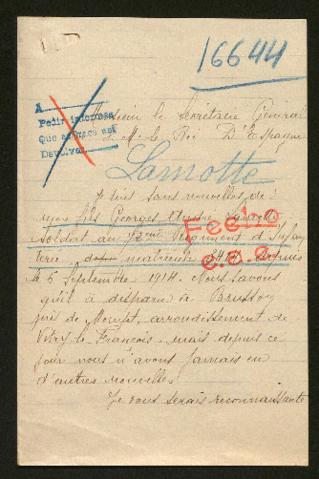 16644
A
Pedir informes
Que acusen est
Devolver
Monsieur le Secrétaire Général
S. M. le Roi D'Espagne
Lamotte
Je suis sans nouvelles de
mon fils Georges
soldat au Régiment d'Infan
terie matricule depuis
le 5 Septembre 1914. Nous savons
qu'il a disparu à
près de arrondissement de
Vitry le François. mais depuis ce
jour nous n'avons jamais eu
d'autres nouvelles.
Je vous serais reconnaissante